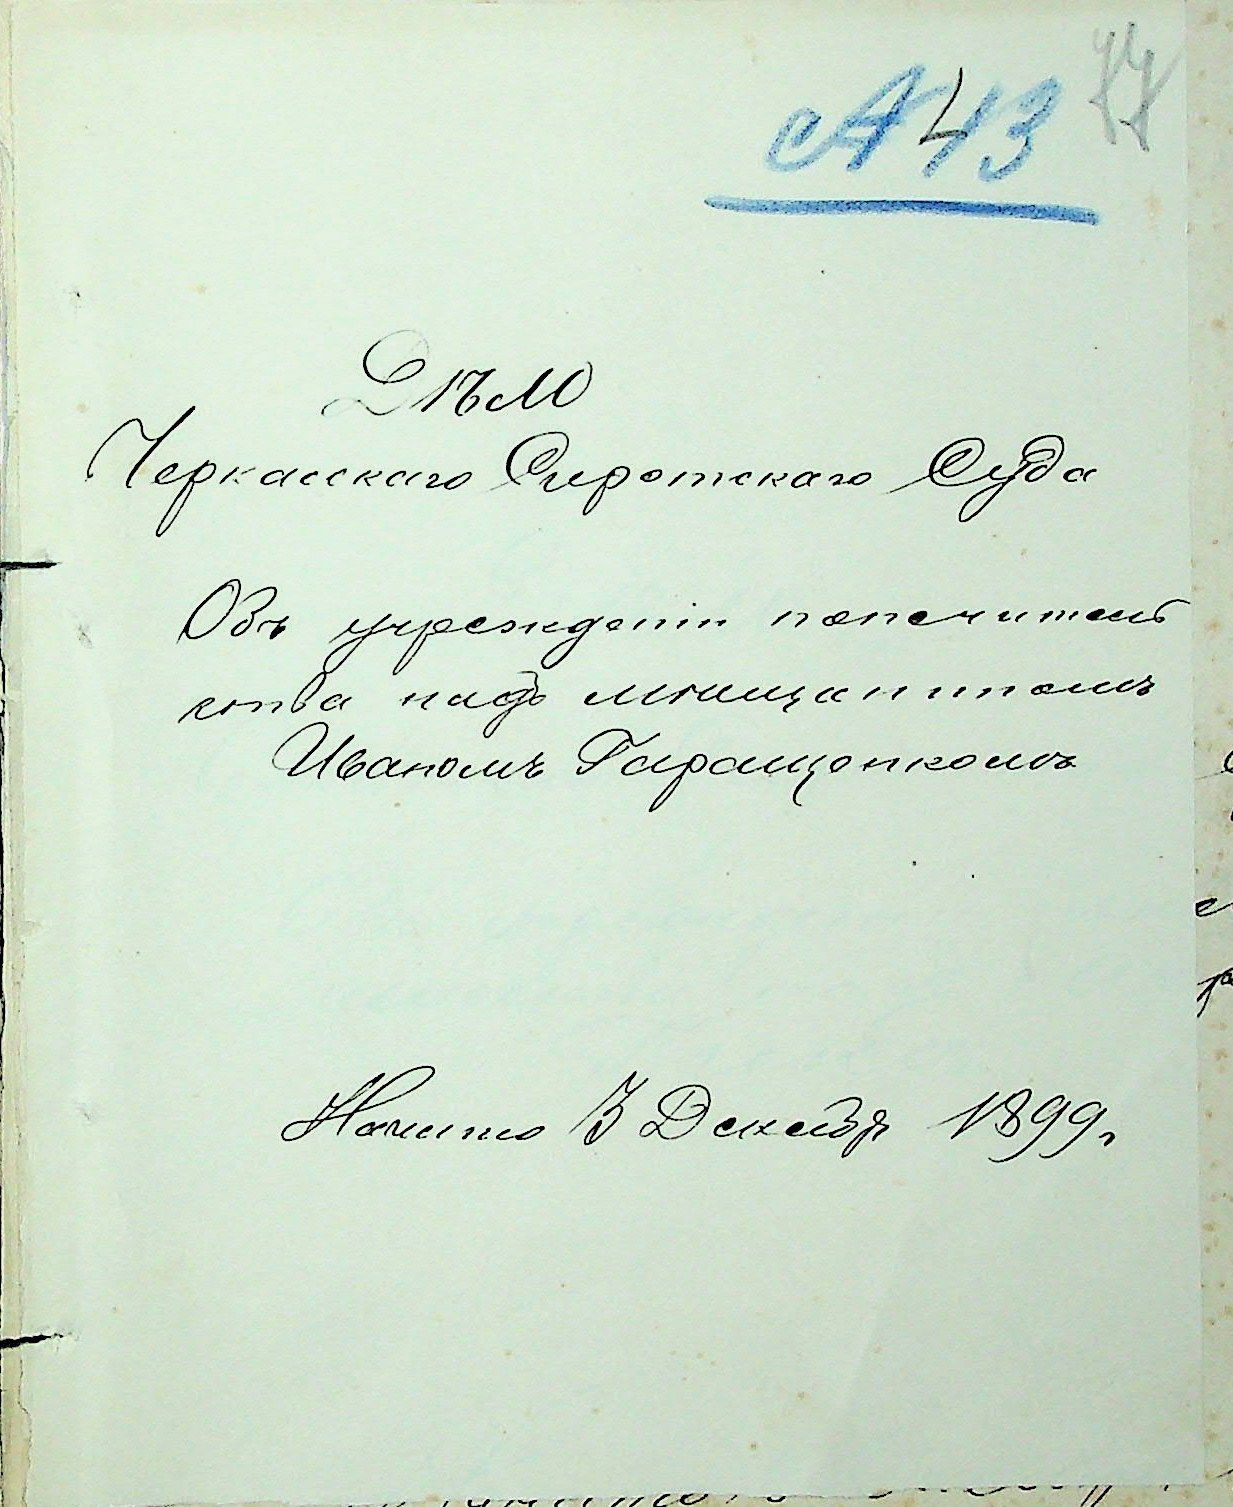 А 43
Дѣло
Черкасскаго Сиротскаго Суда
Объ учрежденіи попечитель
ства надъ мѣщаниномъ
Иваномъ Гаращенкомъ
Начато 3 Декабря 1899 г.